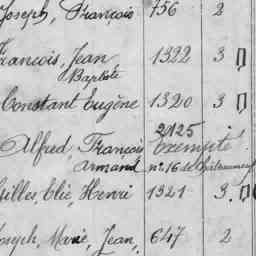 Joseph, François 756 2
François, Jean 1322 3
Baptiste
Constant Eugène 1320 3
2125
Alfred, François Exempté
Armand nº 16 de Châteauneuf
Gilles, Elie, Henri 1321 3
Joseph, Marie, Jean, 647 2